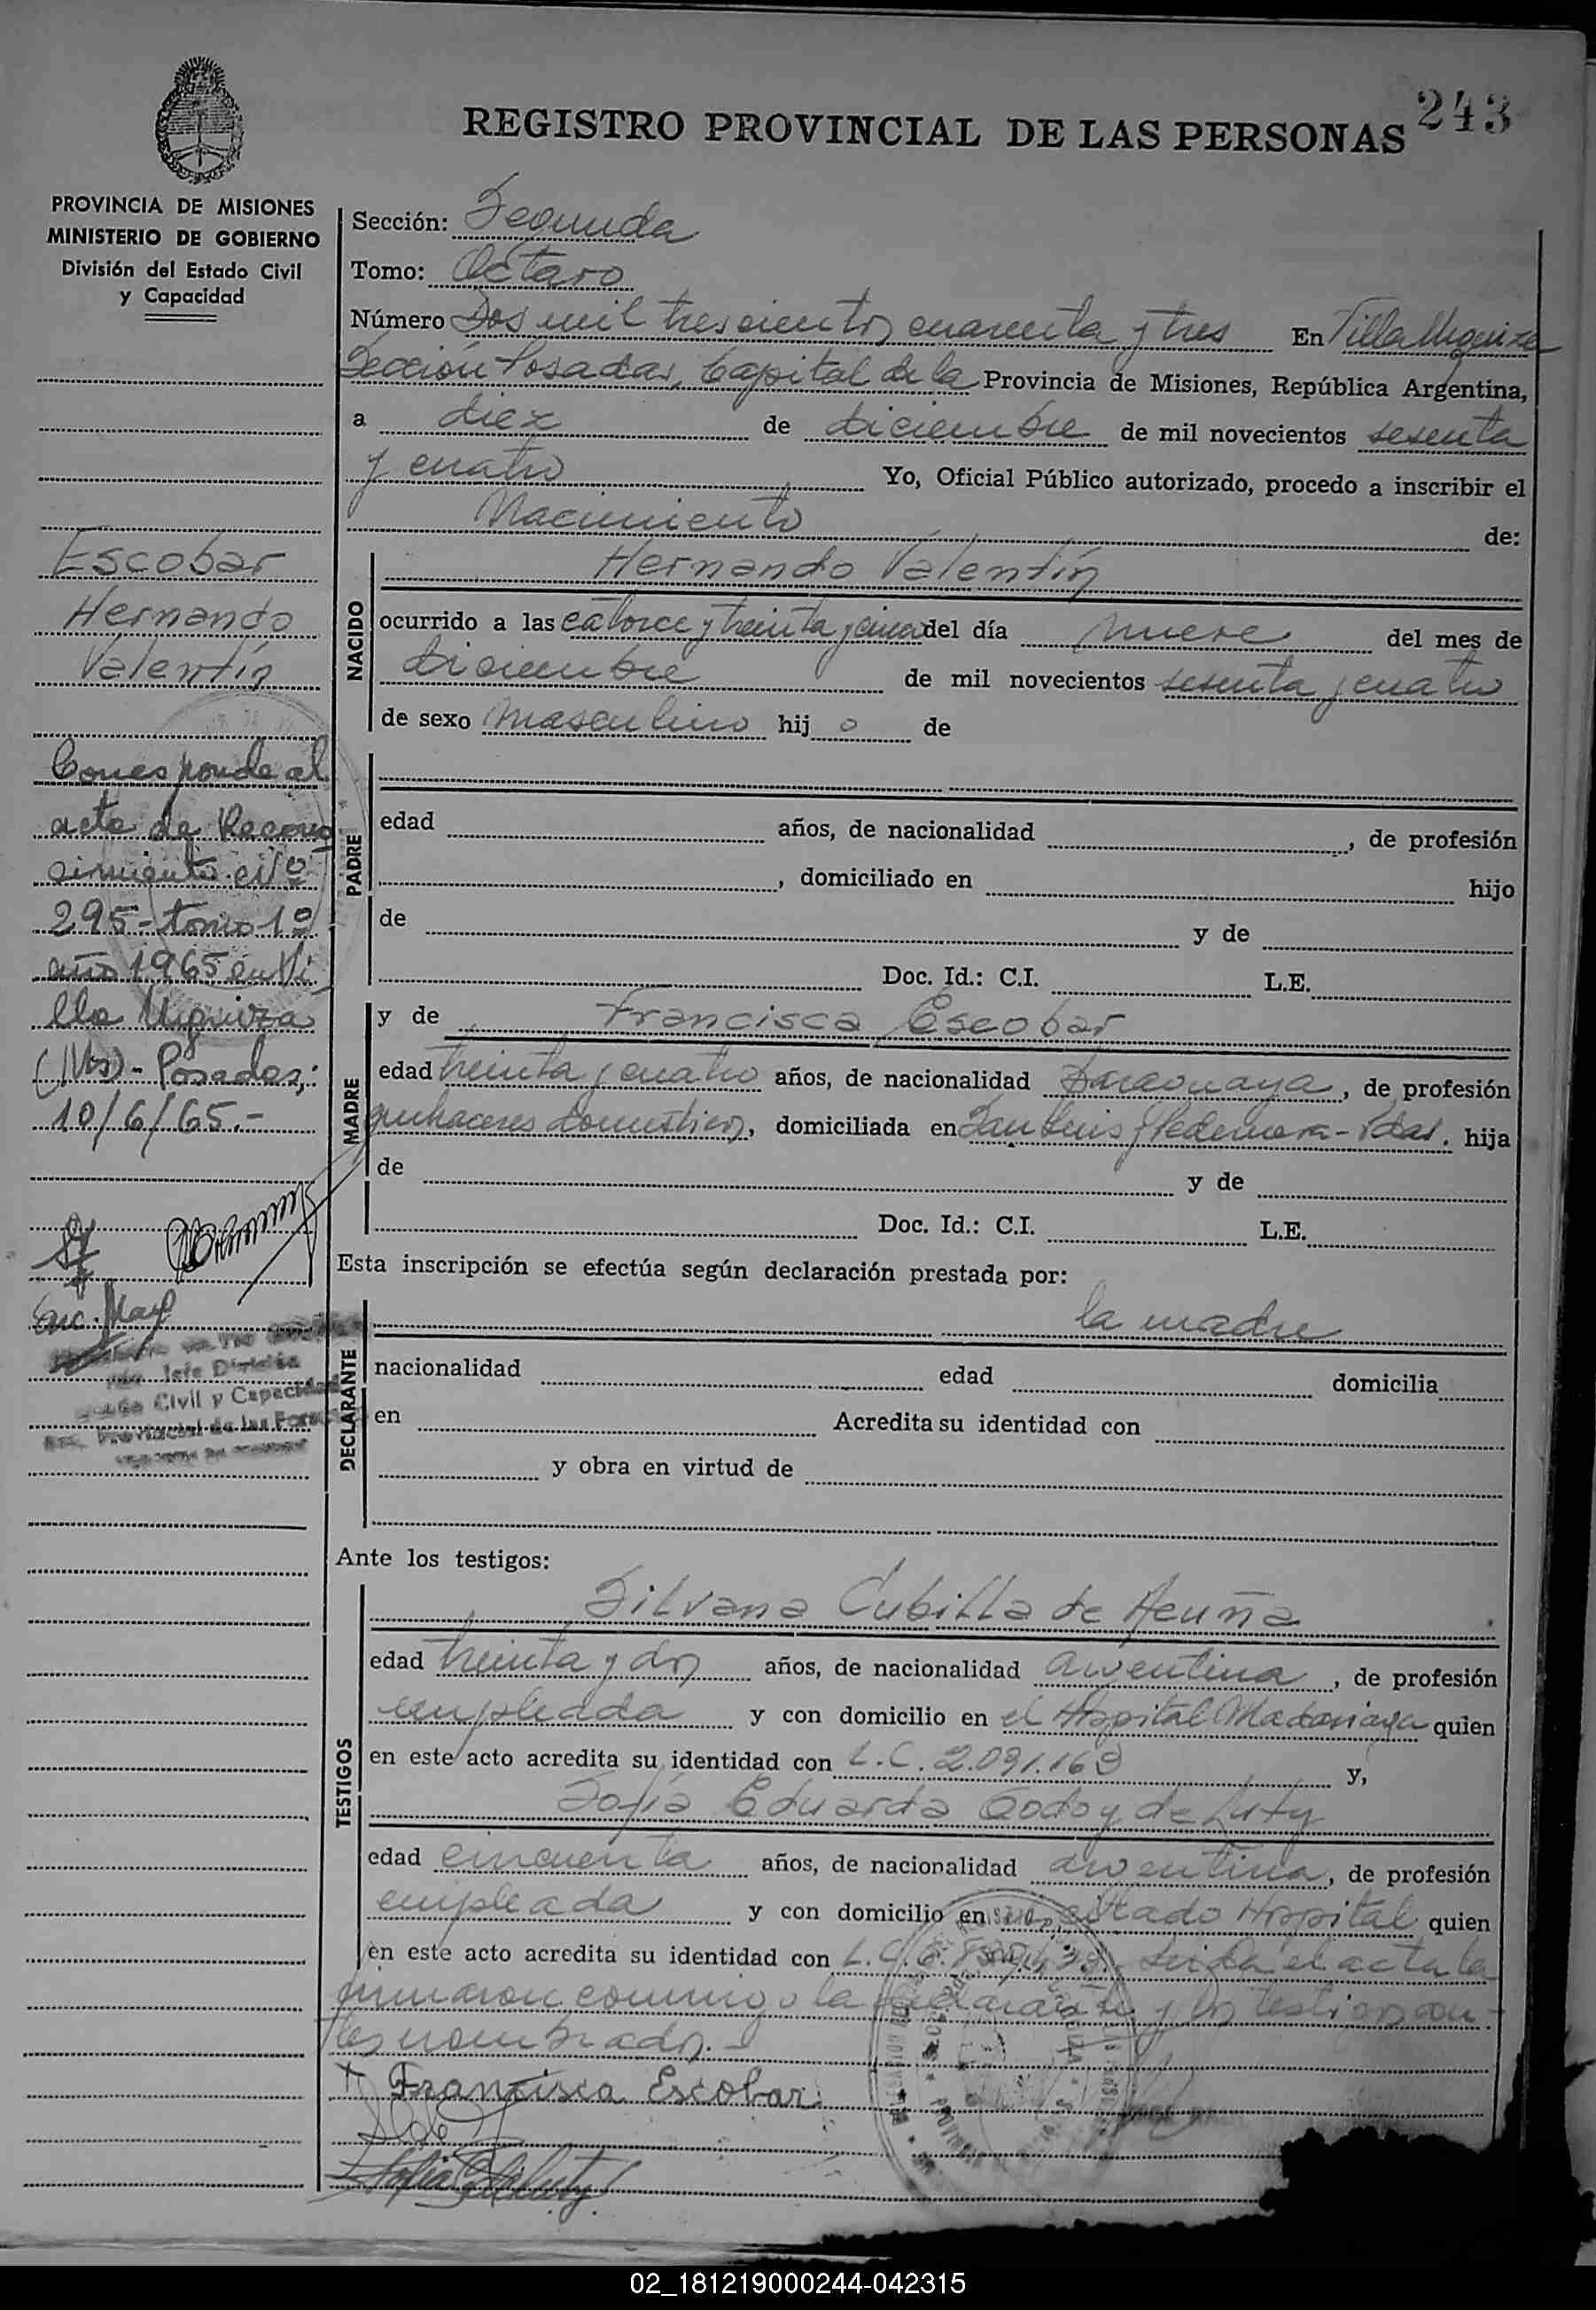 243
REGISTRO PROVINCIAL DE LAS PERSONAS
PROVINCIA DE MISIONES
MINISTERIO DE GOBIERNO
División del Estado Civil
y Capacidad
Escobar
Hernando
Valentín
Corresponde al
acta de Recono
cimiento nº
295- tomo 1º
año 1965 en Vi
lla Urquiza
(Ms)- Posadas,
10/6/65.-
Jefe División
Civil y Capacidad
Sección: Segunda
Tomo: Octavo
Número Dos mil trescientos cuarenta y tres En Villa Urquiza
Sección Posadas, Capital de la Provincia de Misiones, República Argentina,
a diez de diciembre de mil novecientos sesenta
y cuatro Yo, Oficial Público autorizado, procedo a inscribir el
Nacimiento de:
NACIDO
Hernando Valentín
ocurrido a las catorce y treinta y cinco del día nueve del mes de
diciembre de mil novecientos sesenta y cuatro
de sexo masculino hij o de
PADRE
edad años, de nacionalidad , de profesión
, domiciliado en hijo
de y de
Doc. Id.: C.I. L.E.
MADRE
y de Francisca Escobar
edad treinta y cuatro años, de nacionalidad paraguaya, de profesión
quehaceres domésticos, domiciliada en San Luis y Pedernera- Pdas. hija
de y de
Doc. Id.: C.I. L.E.
Esta inscripción se efectúa según declaración prestada por:
DECLARANTE
la madre
nacionalidad edad domicilia
en Acredita su identidad con
y obra en virtud de
Ante los testigos:
TESTIGOS
Silvana Cubilla de Acuña
edad treinta y dos años, de nacionalidad argentina, de profesión
empleada y con domicilio en el Hospital Madariaga quien
en este acto acredita su identidad con L.C. 2.091.169 y,
Sofía Eduarda Godoy de
edad cincuenta años, de nacionalidad argentina, de profesión
empleada y con domicilio en citado Hospital quien
en este acto acredita su identidad con L.C. Leida el acta la
firmaron conmigo la declarante y los testigos an-
tes nombrados.-
Francisca Escobar
02_181219000244-042315